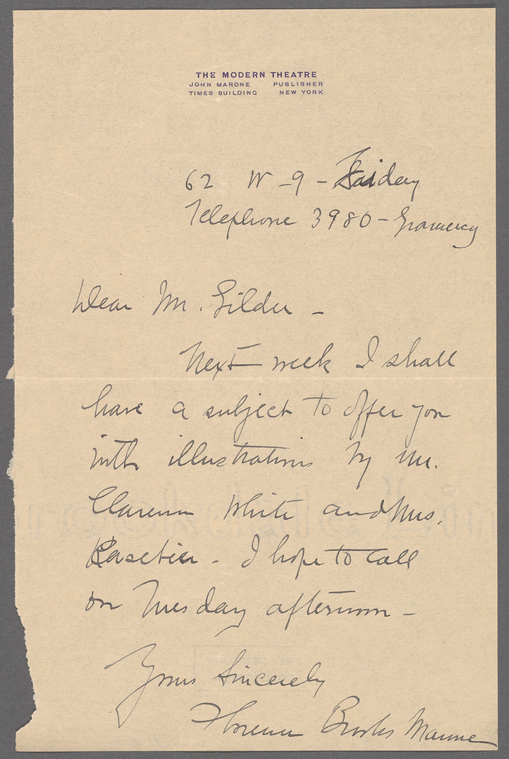 THE MODERN THEATRE
JOHN MARONE PUBLISHER
TIMES BUILDING NEW YORK
62 W-9-Friday
Telephone 3980-Gramercy
Dear Mr. Gilder -
Next week I shall
have a subject to offer you
with illustrations by Mr.
Clarence White and Mrs.
Kasebier - I hope to call
on Tuesday afternoon -
Yours Sincerely
Florence Brooks Marone